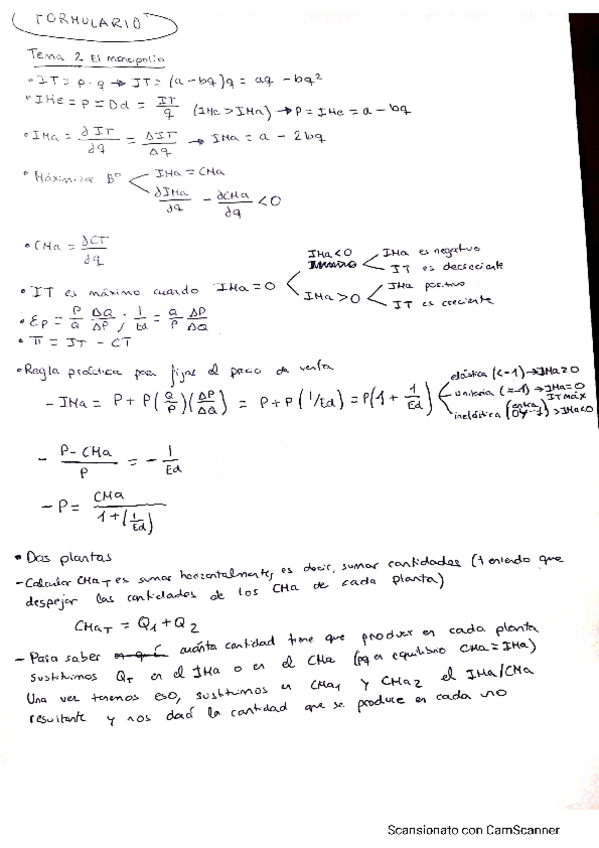 FORMULARIO
Tema 2. El monopolio
• IT = p · q → IT = (a - bq)q = aq - bq²
• IMe = P = Dd = IT/q (IMe > IMa) → P = IMe = a - bq
• IMa = ∂IT/∂q = ΔIT/Δq → IMa = a - 2bq
• Maximizar Bº < IMa = CMa
∂IMa/∂q - ∂CMa/∂q < 0
• CMa = ∂CT/∂q
• IT es máximo cuando IMa = 0 < IMa < 0 < IMa es negativo
IT es decreciente
IMa > 0 < IMa positivo
IT es creciente
• Ep = P/Q ΔQ/ΔP ; 1/Ed = Q/P ΔP/ΔQ
• π = IT - CT
• Regla práctica para fijar el precio de venta
- IMa = P + P(Q/P)(ΔP/ΔQ) = P + P(1/Ed) = P(1 + 1/Ed) < elástica (<-1) → IMa > 0
unitaria (=-1) → IMa = 0 IT máx
inelástica (entre 0 y -1) > IMa < 0
- P - CMa/P = - 1/Ed
- P = CMa/1 + (1/Ed)
• Dos plantas
- Calcular CMaT es sumar horizontalmente, es decir, sumar cantidades (teniendo que
despejar las cantidades de los CMa de cada planta)
CMaT = Q1 + Q2
- Para saber cuánta cantidad tiene que producir en cada planta
sustituimos QT en el IMa o en el CMa (pq en equilibrio CMa = IMa)
Una vez tenemos eso, sustituimos en CMa1 y CMa2 el IMa/CMa
resultante y nos dará la cantidad que se produce en cada uno
Scansionato con CamScanner